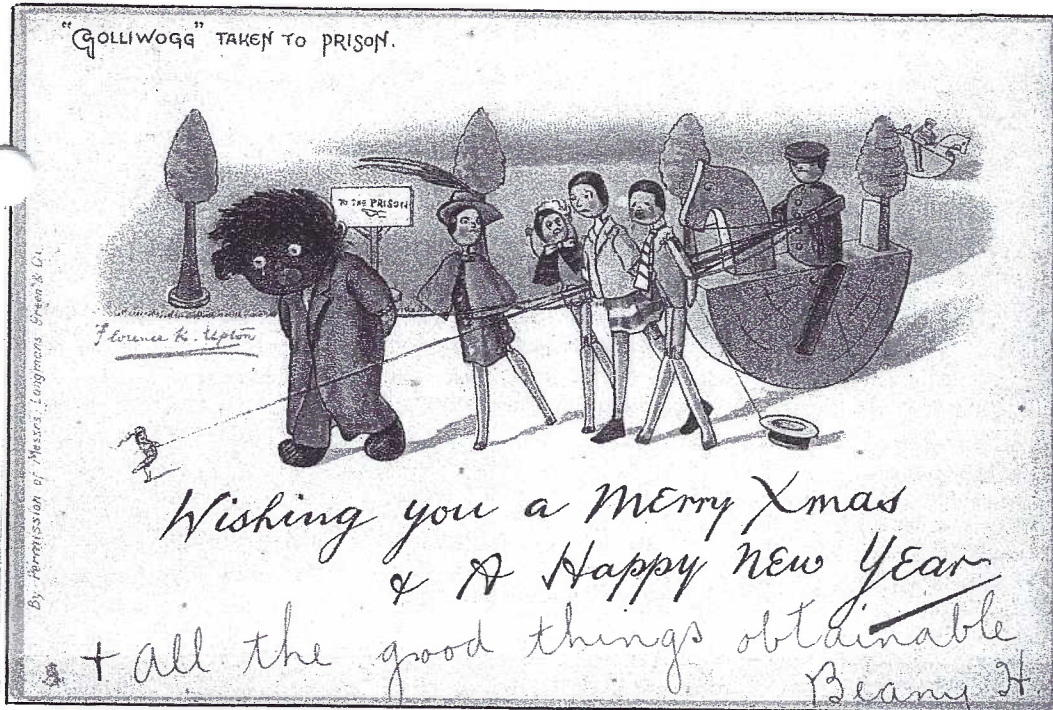 "GOLLIWOGG" TAKEN TO PRISON.
TO THE PRISON
Florence K. Upton
By Permission of Messrs Longmans Green & Co.
Wishing you a Merry Xmas
& A Happy New Year
+ all the good things obtainable
Beany H.